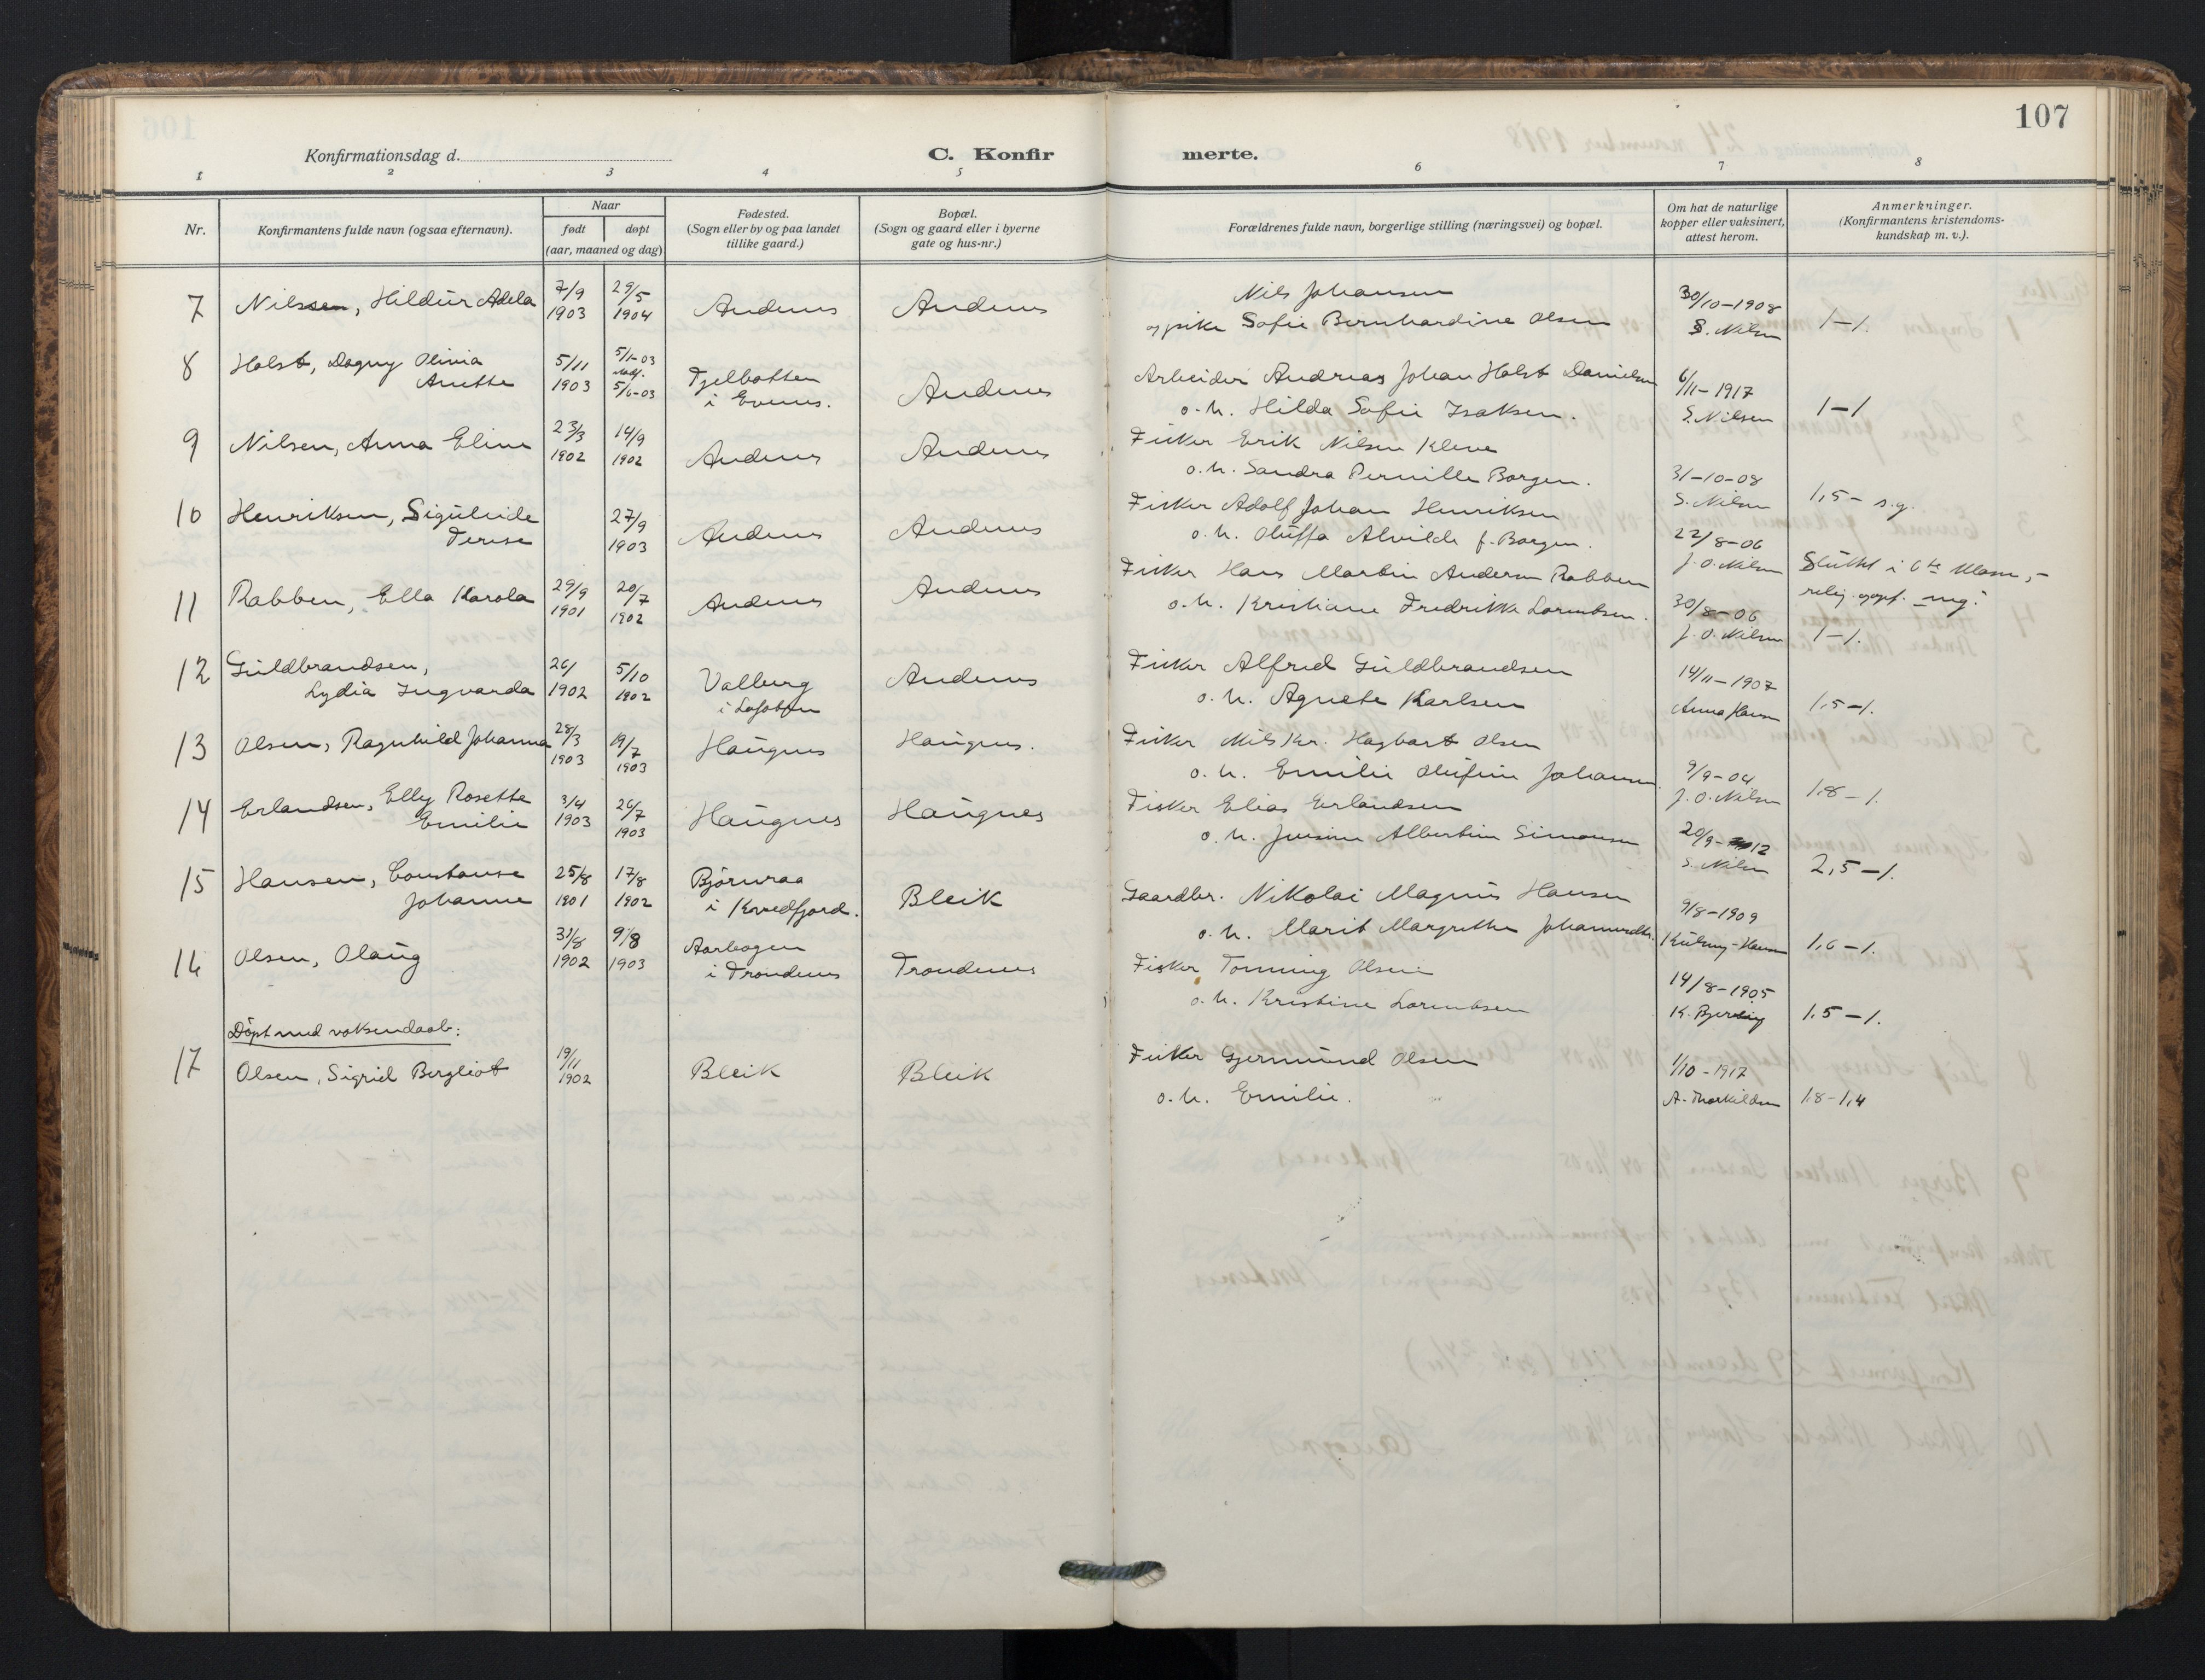 107
Konfirmationsdag d.
C. Konfirmerte.
1 2 3 4 5 6 7 8
Nr.
Konfirmantens fulde navn (ogsaa efternavn).
Naar
født døpt
(aar, maaned og dag)
Fødested.
(Sogn eller by og paa landet
tillike gaard.)
Bopæl.
(Sogn og gaard eller i byerne
gate og hus-nr.)
Forældrenes fulde navn, borgerlige stilling (næringsvei) og bopæl.
Om hat de naturlige
kopper eller vaksinert,
attest herom.
Anmerkninger.
(Konfirmantens kristendoms-
kundskap m. v.).
7 Nilssen, Hildur Adela 7/9 1903 29/5 1904 Andenes Andenes
Nils Johansen
og pike Sofie Bernhardine Olsen
30/10-1908
S. Nilsen
1-1.
8 Holst, Dagny Olivia
Anette
5/11 1903 5/1-03
5/6-03
Fjelbotten
i Evenes.
Andenes
Arbeider Andreas Johan Holst Danielsen
o. h. Hilda Sofie Isaksen.
6/11-1917
S. Nilsen
1-1
9 Nilsen, Anna Eline 23/3 1902 14/9 1902 Andenes Andenes
Fisker Erik Nilsen Kleve
o. h. Sandra Pernille Borgen.
31-10-08
S. Nilsen
1,5- s.g.
10 Henriksen, Sigulvide
Terese
27/9 1903 Andenes Andenes
Fisker Adolf Johan Henriksen
o. h. Oluffa Alvilde f. Borgen.
22/8-06
J. O. Nilsen
Sluttet i 6te klasse,-
relig. opf. meg.
11 Robben, Ella Karola 29/9 1901 20/7 1902 Andenes Andenes
Fisker Hans Martin Andersen Robben
o. h. Kristiane Fredrikke Lorentsen.
30/8-06
J. O. Nilsen
1-1.
12 Guldbrandsen,
Lydia Ingvarda
26/ 1902 5/10 1902
Valberg
i Lofoten
Andenes
Fisker Alfred Guldbrandsen
o. h. Agnete Karlsen
14/11-1907
Anna Hansen
1,5-1.
13 Olsen, Ragnhild Johanna 28/3 1903 19/7 1903 Haugnes Haugnes.
Fisker Nils Kr. Hagbart Olsen
o. h. Emilie Olufine Johansen
9/9-04
J. O. Nilsen
1,8-1.
14 Erlandsen, Elly Rosette
Emilie
3/4 1903 26/7 1903 Haugnes Haugnes
Fisker Elias Erlandsen
o. h. Jensine Albertine Simonsen
20/9-12
S. Nilsen
2,5-1.
15 Hansen, Constanse
Johanne
25/8 1901 17/8 1902
Bjørnraa
i Kvedfjord.
Bleik
Gaardbr. Nikolai Magnus Hansen
o. h. Marit Margrethe Johannesdtr.
9/8-1909
1,6-1.
16 Olsen, Olaug 31/8 1902 9/8 1903
Aarbogen
i Trondenes
Trondenes
Fisker Tonning Olsen
o. h. Kristine Lorentsen
14/8-1905
1,5-1.
Døpt med voksendaab:
17 Olsen, Sigrid Bergliot 19/11 1902 Bleik Bleik
Fisker Gjermund Olsen
o. h. Emilie.
1/10-1917
A. Thorkildsen
1,8-1,4